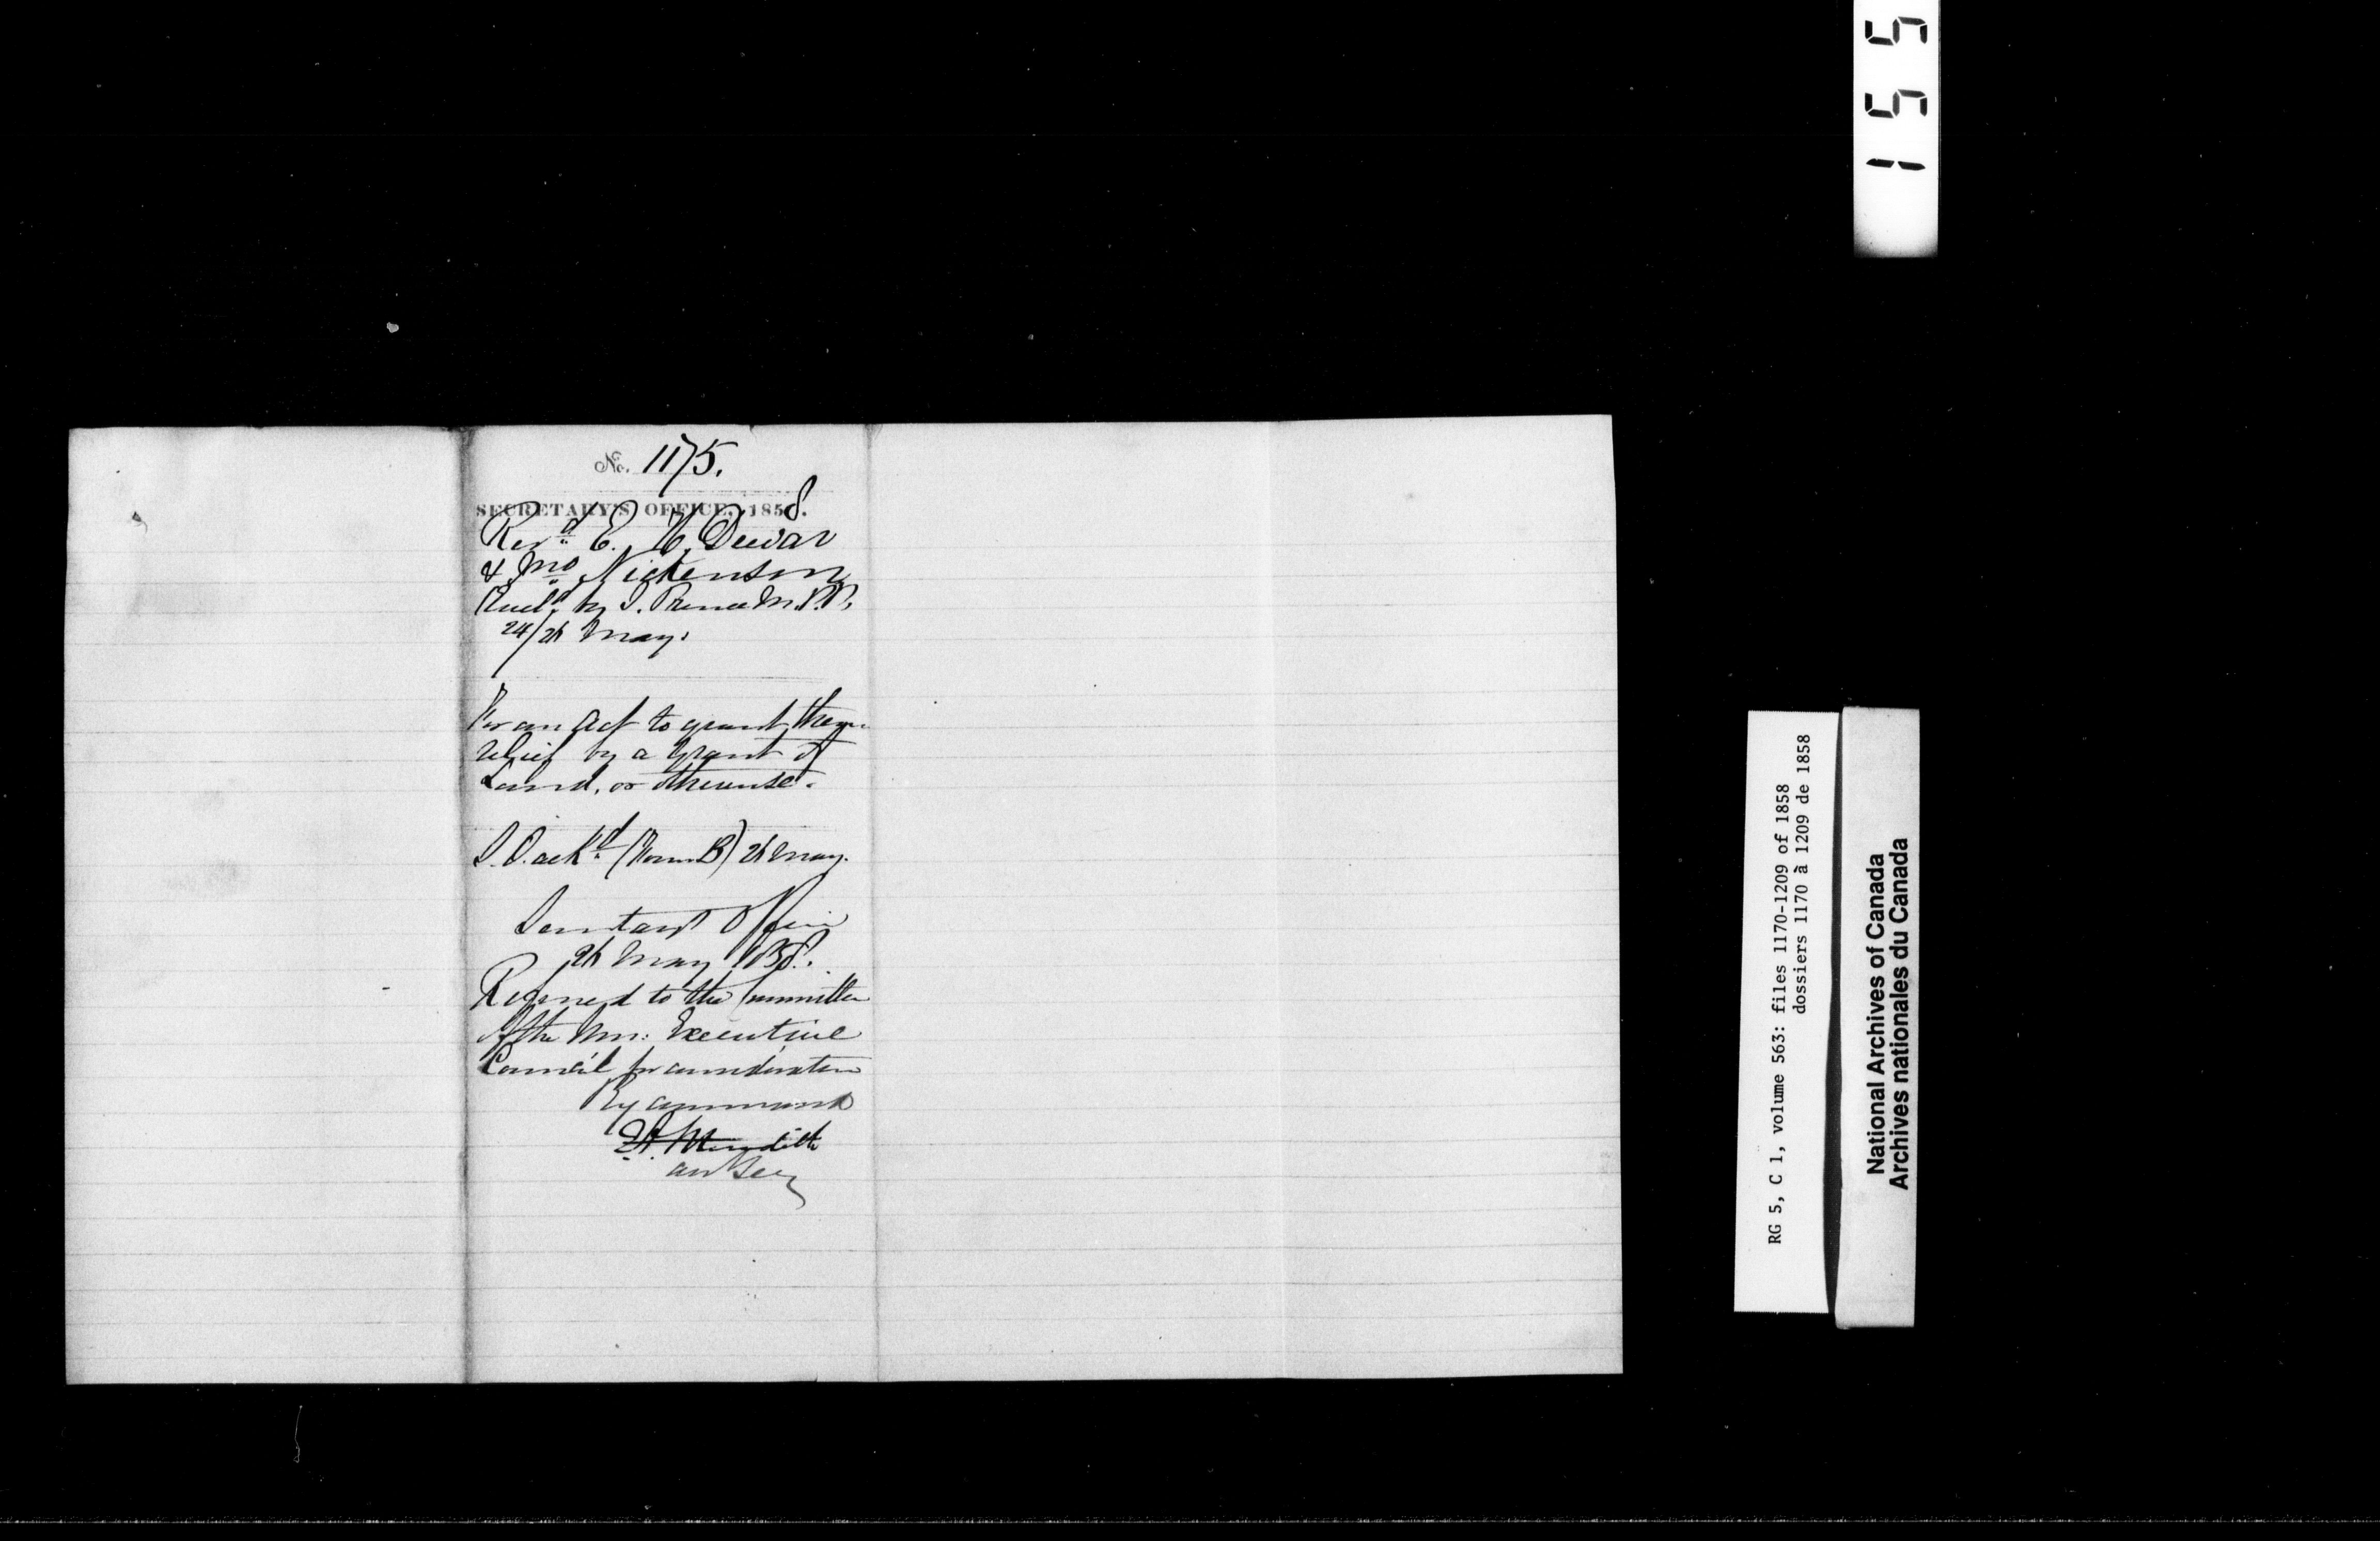 No. 1175.
SECRETARY'S OFFICE, 1858.
Revd E. H. Dewar
& Jno Nickenson
Encld by J. Prince M.P.P.
24/26 May.
For an Act to grant them
relief by a Grant of
Land, or otherwise.
ackd (Form B) 26 May.
Secretary's Office
26 May 1858.
Referred to the Committee
of the Hon: Executive
Council for consideration
By command
E. A. Meredith
Asst Secy
155
RG 5, C 1, volume 563: files 1170-1209 of 1858
dossiers 1170 à 1209 de 1858
National Archives of Canada
Archives nationales du Canada